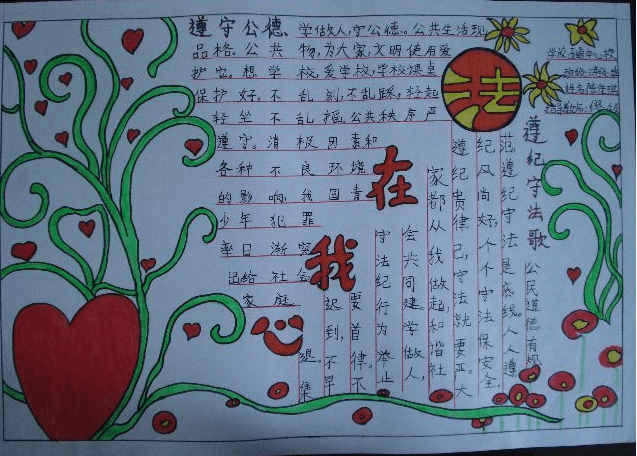 遵守公德、学做人,守公德。公共生活现
品格。公共物,为大家,文明使用爱
护它。想学校,爱学校,学校课桌
保护好。不乱刻,不乱踩,轻起
轻坐不乱搞。公共秩序严
遵守。消极因素和
各种不良环境
的影响,我国青
少年犯罪
率日渐突
出给社会
家庭
法
在
我
心
学校:
班级:
姓名:
遵纪守法歌
公民道德有规
范遵纪守法是底线。人人遵
纪风尚好,个个守法保安全
遵纪贵律己,守法就要严。大
家都从我做起,和谐社
会共同建。学做人,
守法纪行为举止
要首律。不
迟到,不早
退。集